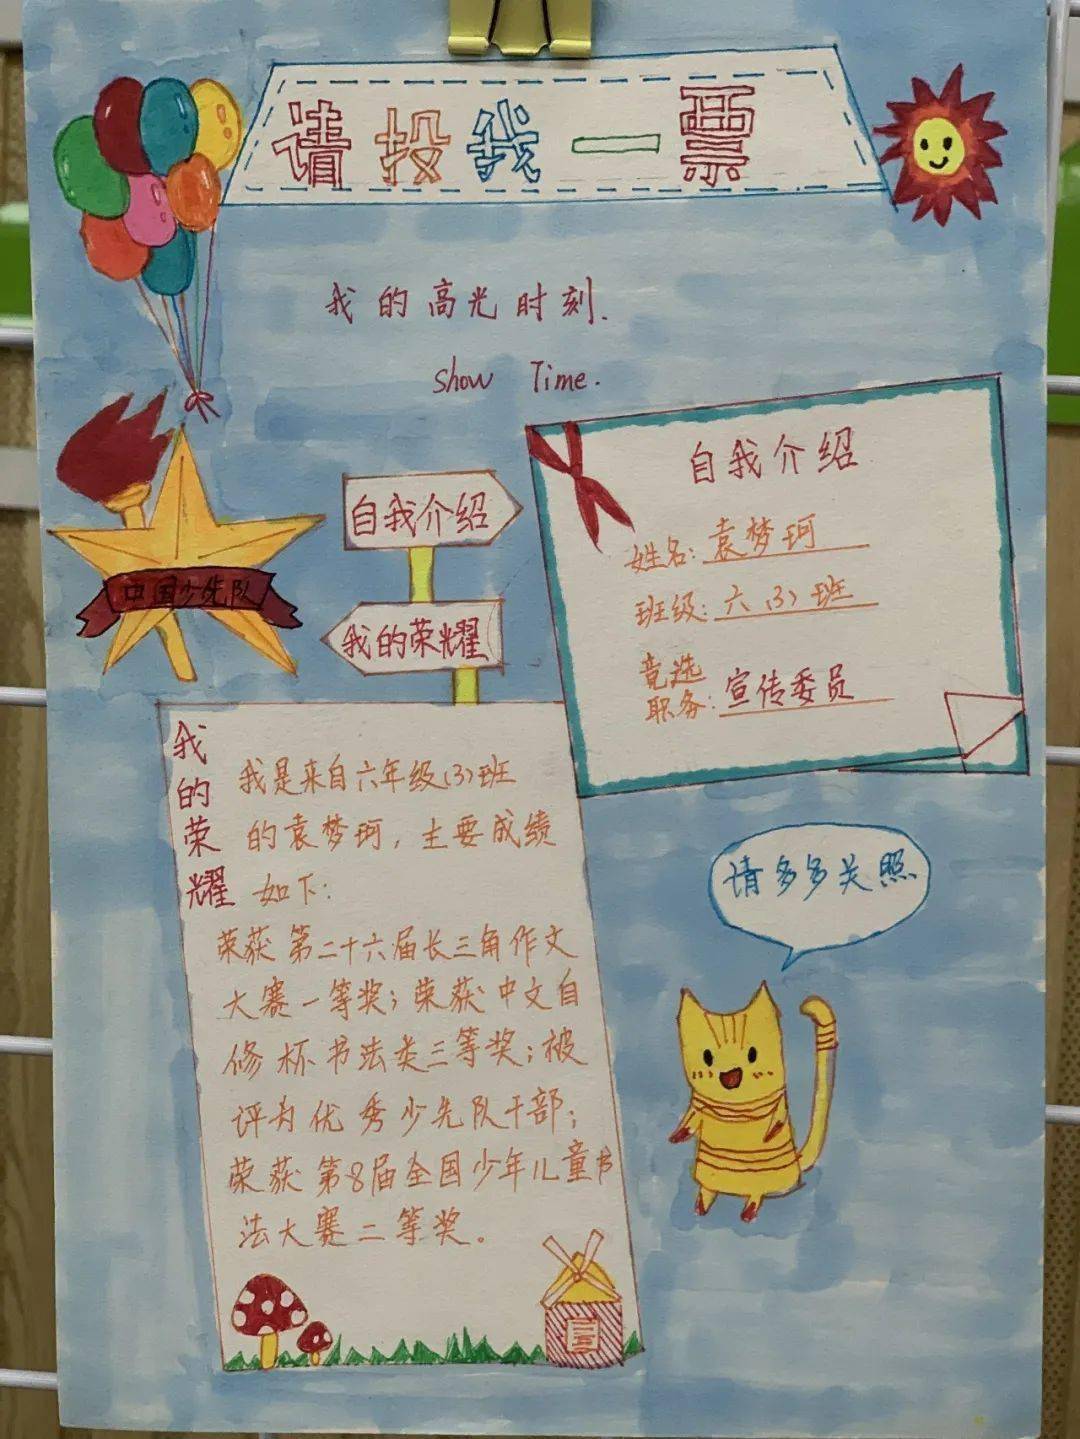 请投我一票
我的高光时刻.
Show Time.
中国少先队
自我介绍
我的荣耀
自我介绍
姓名:袁梦珂
班级:六(3)班
竞选
职务:宣传委员
我的荣耀
我是来自六年级(3)班
的袁梦珂,主要成绩
如下:
荣获第二十六届长三角作文
大赛一等奖;荣获中文自
修杯书法类三等奖;被
评为优秀少先队干部;
荣获第8届全国少年儿童书
法大赛二等奖。
请多多关照